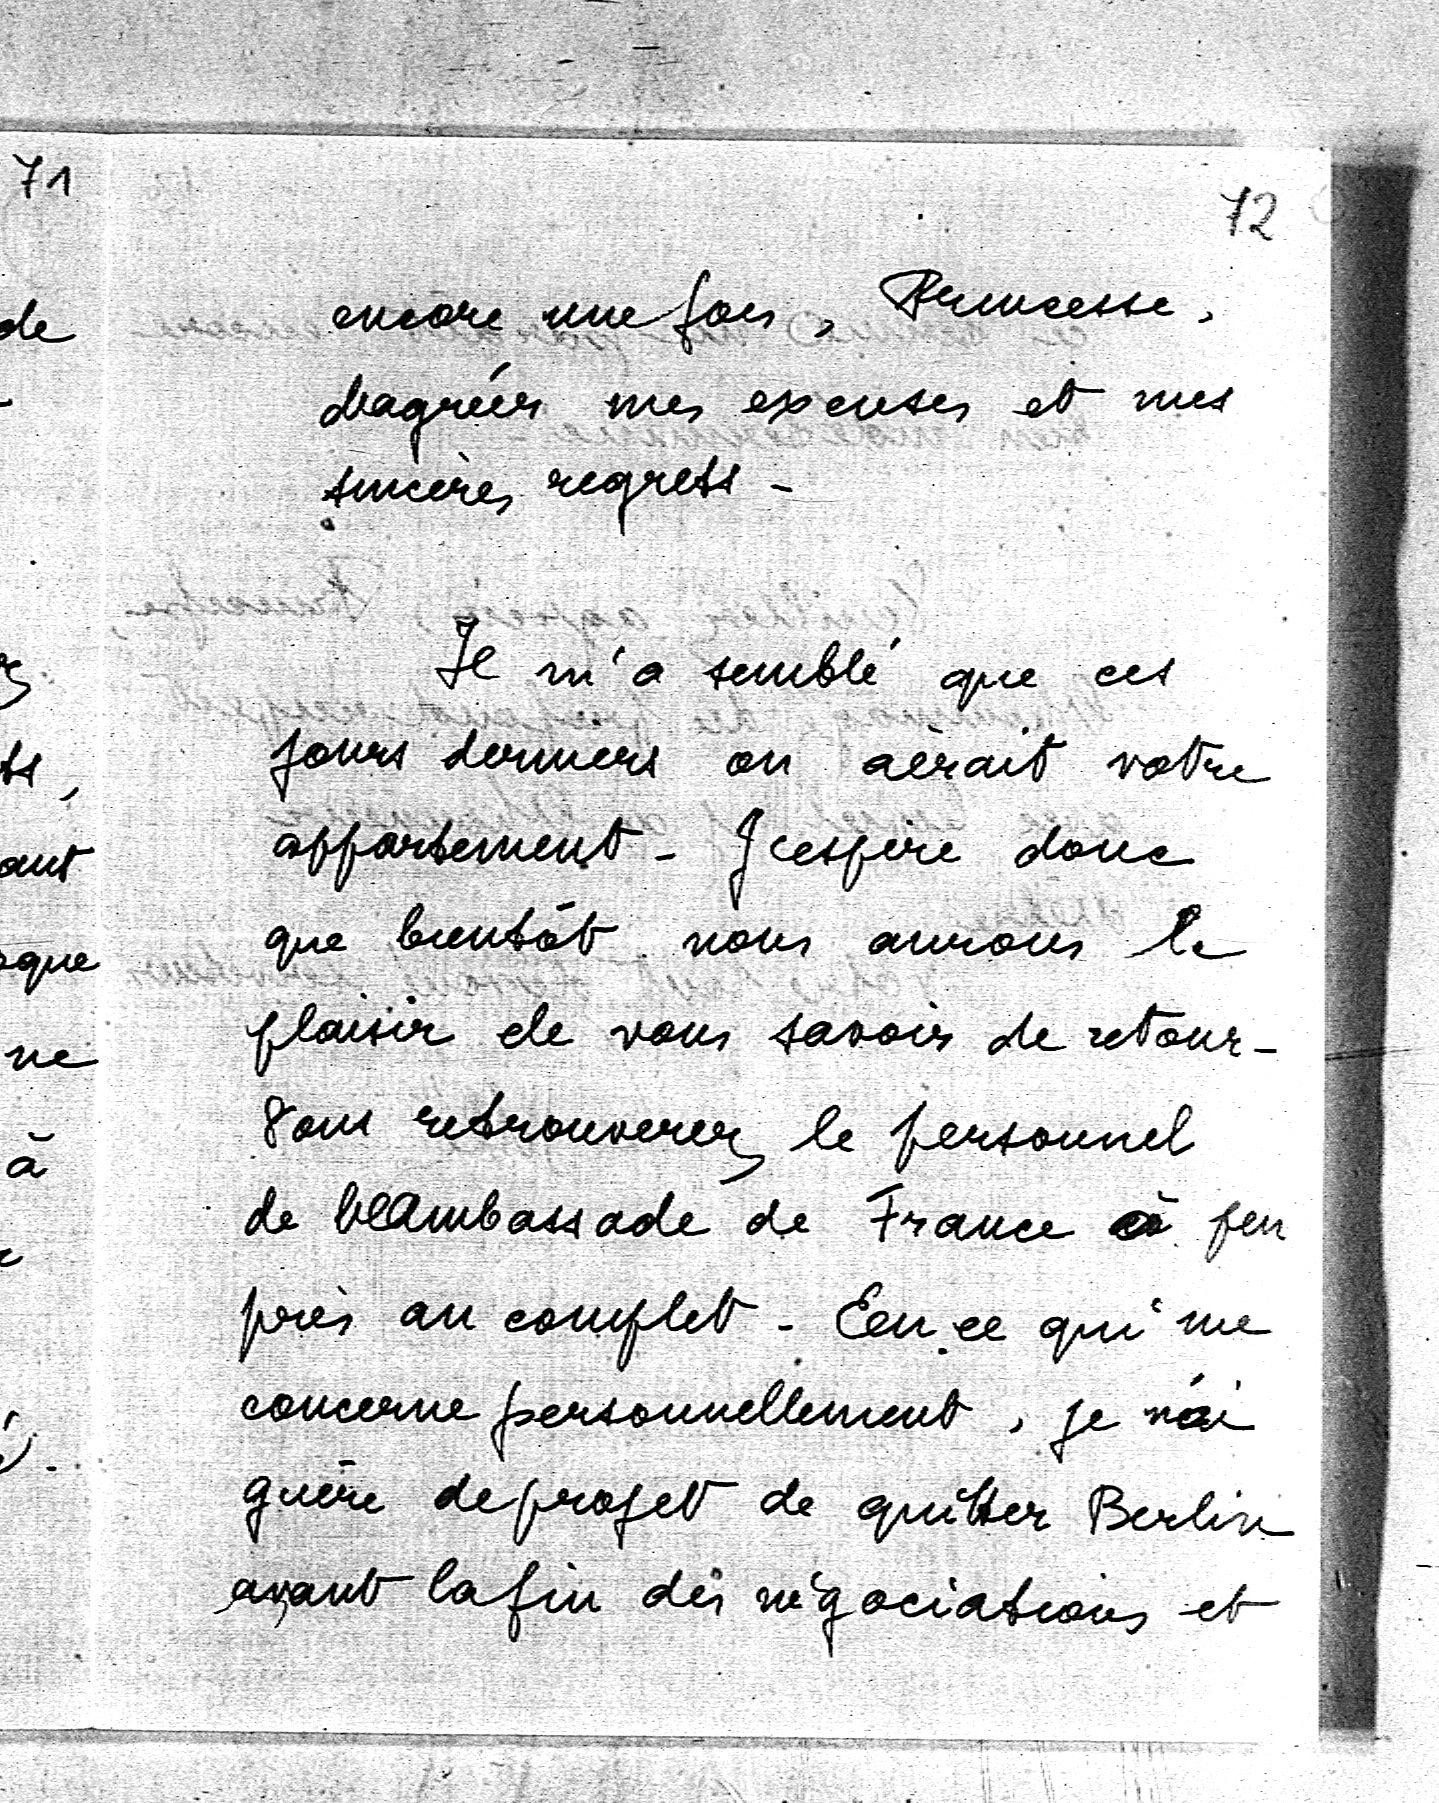 71
72
de
encore une fois, Princesse,
d'agréer mes excuses et mes
sincères regrets -
Il m'a semblé que ces
jours derniers on aérait votre
ts,
appartement - J'espère donc
ant
que bientôt nous aurons le
que
plaisir de vous savoir de retour -
ne
Vous retrouverez le personnel
à
de l'Ambassade de France à peu
près au complet - En ce qui me
concerne personnellement, je n'ai
guère de projet de quitter Berlin
avant la fin des négociations et